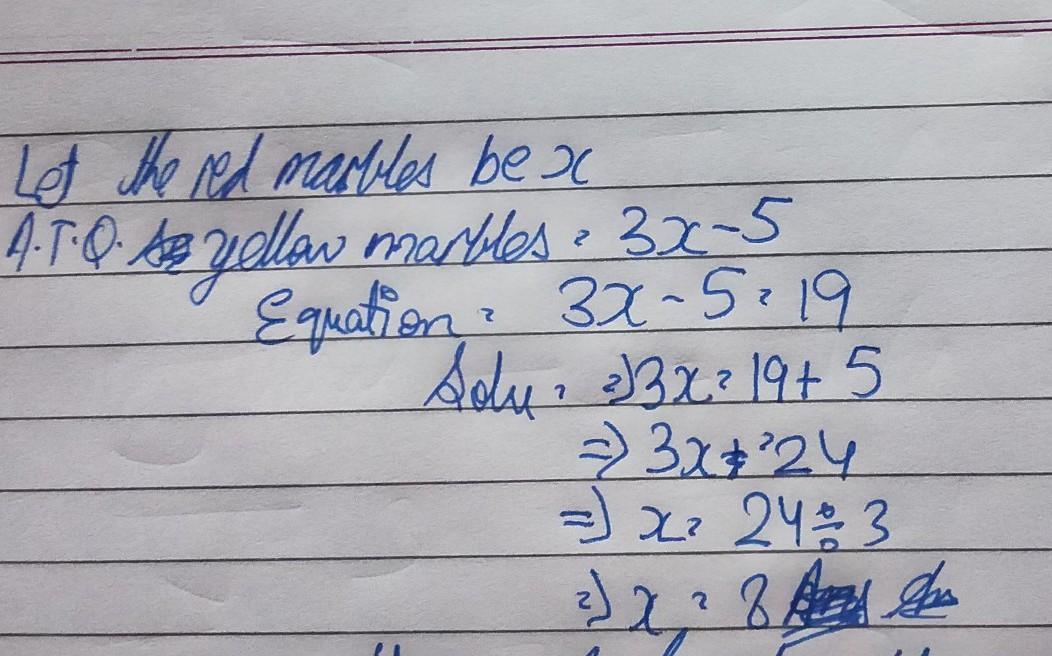 Let the red marbles be x
A.T.Q. yellow marbles = 3x-5
Equation = 3x - 5 = 19
Solu = ⇒ 3x = 19 + 5
⇒ 3x = 24
⇒ x = 24 ÷ 3
⇒ x = 8